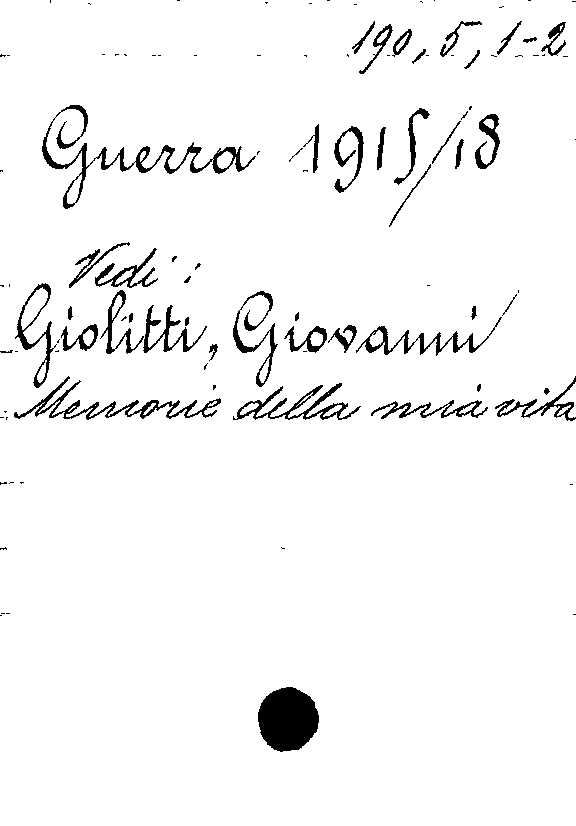 190, 5, 1-2
Guerra 1915/18
Vedi:
Giolitti, Giovanni
Memorie della mia vita